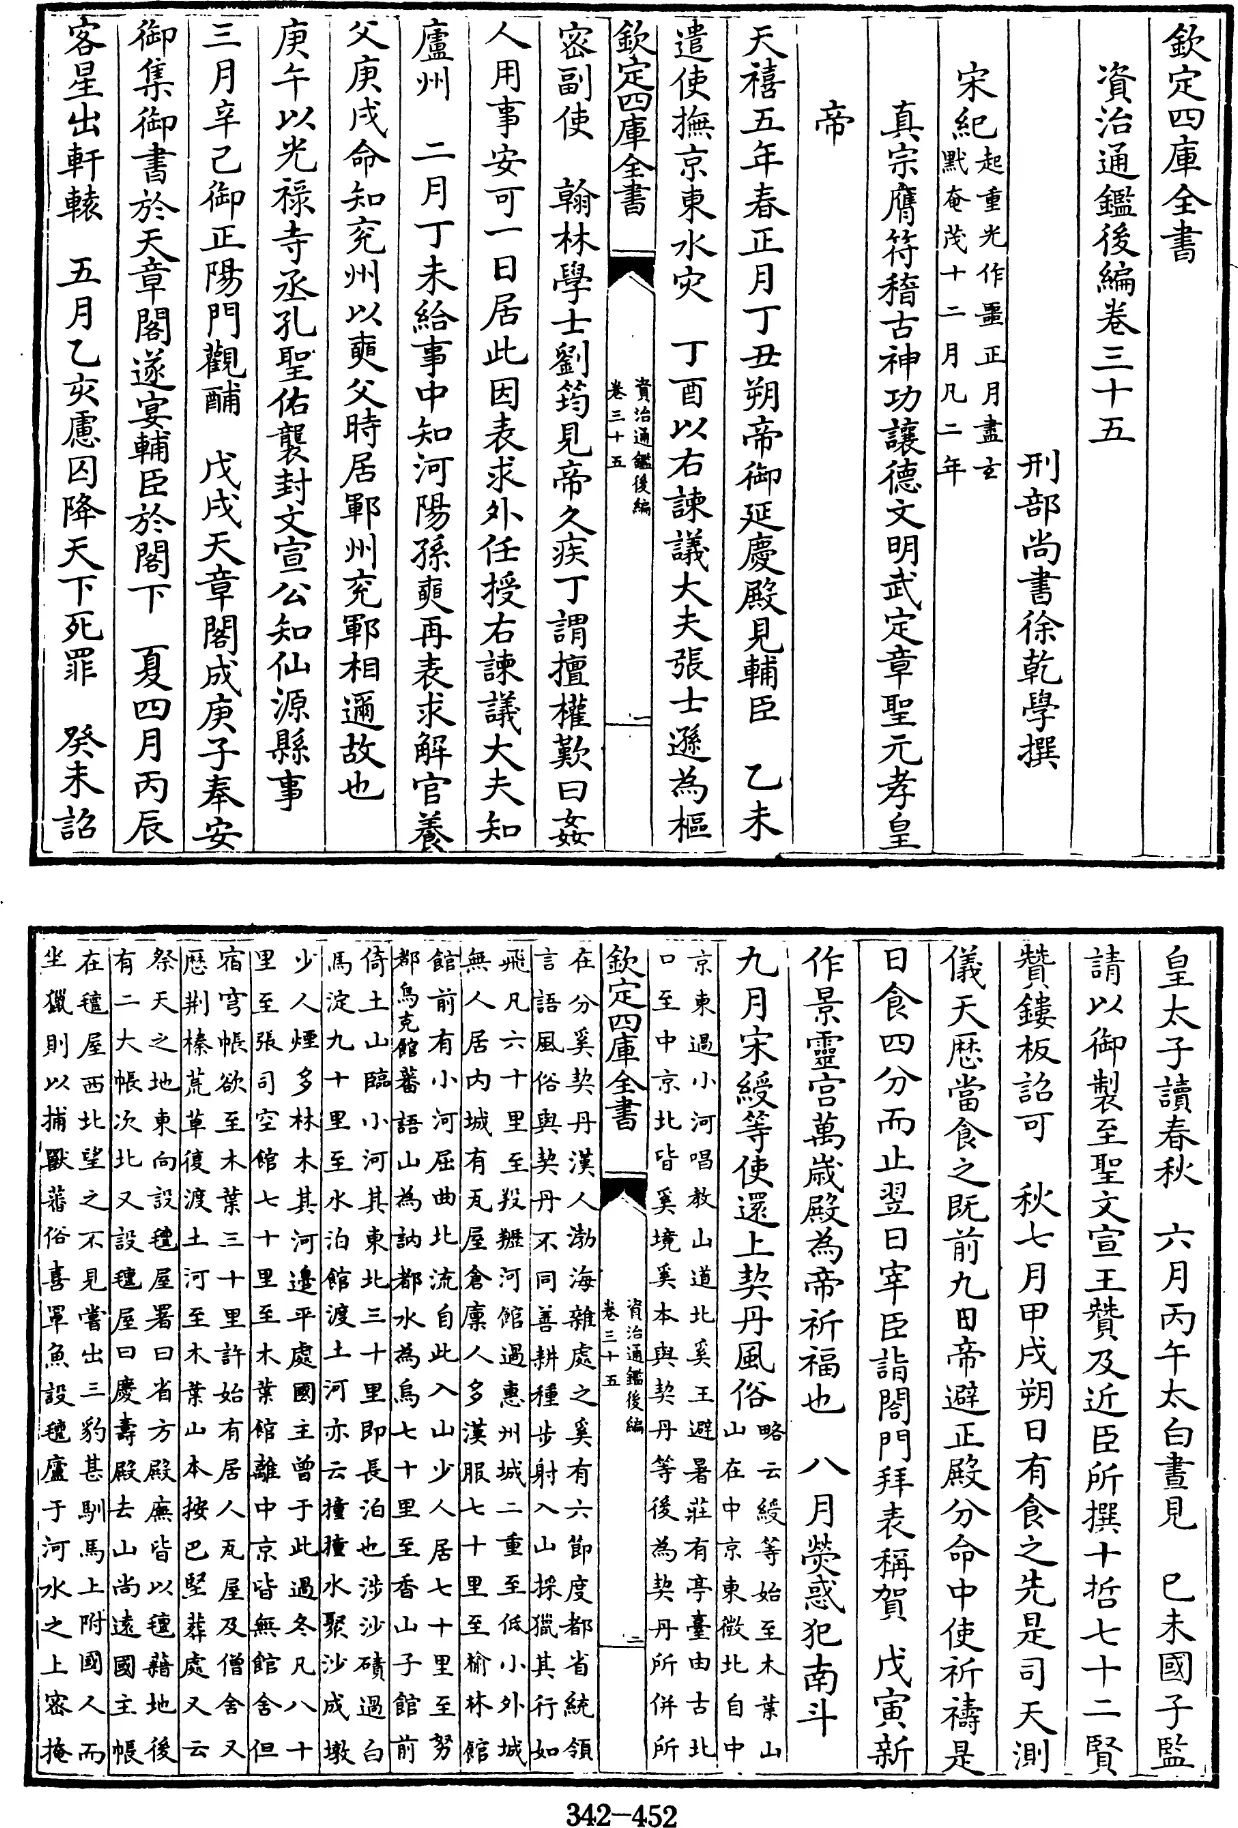 欽定四庫全書
資治通鑑後編卷三十五
刑部尚書徐乾學撰
宋紀
起重光作噩正月盡玄
黓奄茂十二月凡二年
真宗膺符稽古神功讓德文明武定章聖元孝皇
帝
天禧五年春正月丁丑朔帝御延慶殿見輔臣 乙未
遣使撫京東水灾 丁酉以右諫議大夫張士遜為樞
欽定四庫全書
資治通鑑後編
卷三十五
一
密副使 翰林學士劉筠見帝久疾丁謂擅權歎曰姦
人用事安可一日居此因表求外任授右諫議大夫知
廬州 二月丁未給事中知河陽孫奭再表求解官養
父庚戌命知兖州以奭父時居鄆州兖鄆相邇故也
庚午以光祿寺丞孔聖佑襲封文宣公知仙源縣事
三月辛己御正陽門觀酺 戊戌天章閣成庚子奉安
御集御書於天章閣遂宴輔臣於閣下 夏四月丙辰
客星出軒轅 五月乙亥慮囚降天下死罪 癸未詔
皇太子讀春秋 六月丙午太白晝見 己未國子監
請以御製至聖文宣王贊及近臣所撰十哲七十二賢
贊鏤板詔可 秋七月甲戌朔日有食之先是司天測
儀天歴當食之既前九日帝避正殿分命中使祈禱是
日食四分而止翌日宰臣詣閤門拜表稱賀 戊寅新
作景靈宮萬歲殿為帝祈福也 八月熒惑犯南斗
九月宋綬等使還上契丹風俗
略云綬等始至木葉山
山在中京東微北自中
京東過小河唱教山道北奚王避暑莊有亭臺由古北
口至中京北皆奚境奚本與契丹等後為契丹所併所
欽定四庫全書
資治通鑑後編
卷三十五
二
在分奚契丹漢人渤海雜處之奚有六節度都省統領
言語風俗與契丹不同善耕種步射入山採獵其行如
飛凡六十里至羖䍽河館過惠州城二重至低小外城
無人居内城有瓦屋倉廪人多漢服七十里至榆林館
館前有小河屈曲北流自此入山少人居七十里至努
都烏克館蕃語山為訥都水為烏七十里至香山子館前
倚土山臨小河其東北三十里即長泊也涉沙磧過白
馬淀九十里至水泊館渡土河亦云撞撞水聚沙成墩
少人煙多林木其河邊平處國主曾于此過冬凡八十
里至張司空館七十里至木葉館離中京皆無館舍但
宿穹帳欲至木葉三十里許始有居人瓦屋及僧舍又
歴荆榛荒草復渡土河至木葉山本按巴堅葬處又云
祭天之地東向設氊屋署曰省方殿廡皆以氊藉地後
有二大帳次北又設氊屋曰慶壽殿去山尚遠國主帳
在氊屋西北望之不見嘗出三豹甚馴馬上附國人而
坐獵則以捕獸蕃俗喜罩魚設氊廬于河水之上密掩
342-452